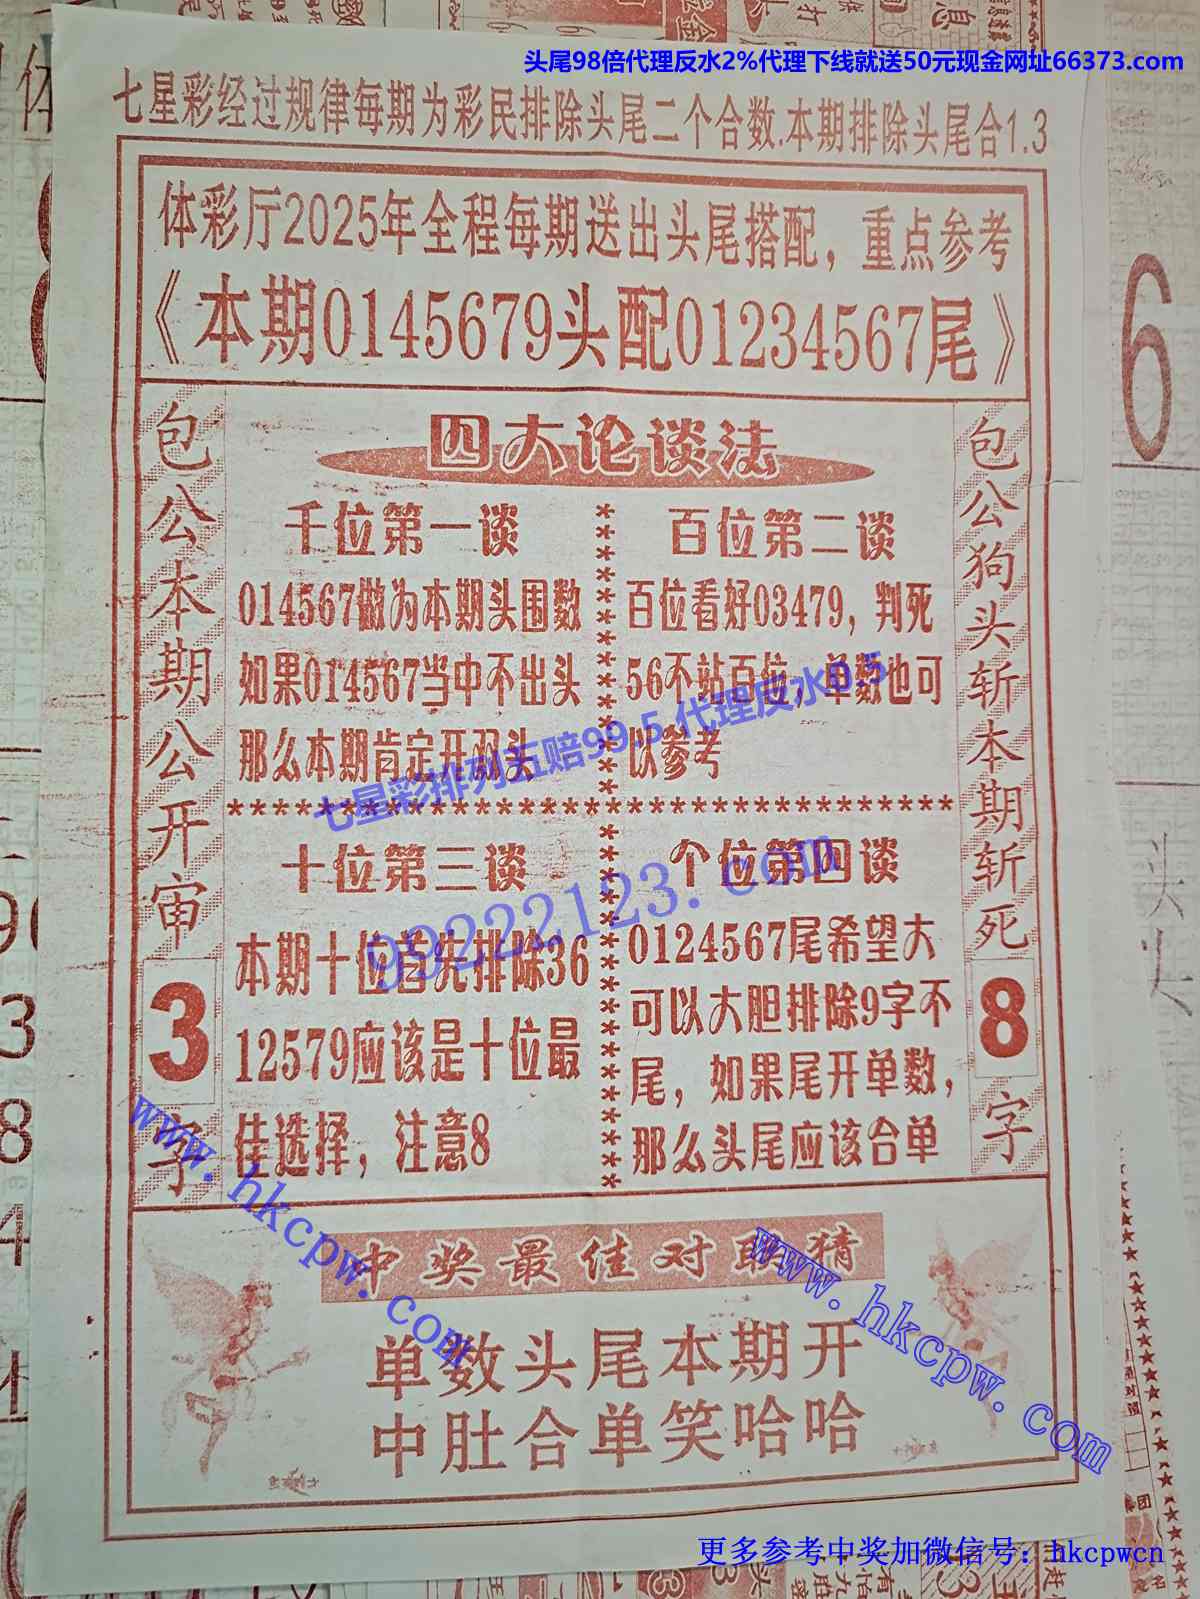 头尾98倍代理反水2%代理下线就送50元现金网址66373.com
七星彩经过规律每期为彩民排除头尾二个合数.本期排除头尾合1.3
体彩厅2025年全程每期送出头尾搭配，重点参考
《本期0145679头配01234567尾》
包公本期公开审
3
字
四大论谈法
千位第一谈
014567做为本期头围数
如果014567当中不出头
那么本期肯定开双头
百位第二谈
百位看好03479，判死
56不站百位，单数也可
以参考
十位第三谈
本期十位首先排除36
12579应该是十位最
佳选择，注意8
个位第四谈
0124567尾希望大
可以大胆排除9字不
尾，如果尾开单数，
那么头尾应该合单
包公狗头斩本期斩死
8
字
七星彩排列五赔99.5 代理反水0.5
99222123.com
www.hkcpw.com
www.hkcpw.com
中奖最佳对联猜
单数头尾本期开
中肚合单笑哈哈
6
头
更多参考中奖加微信号：hkcpwcn